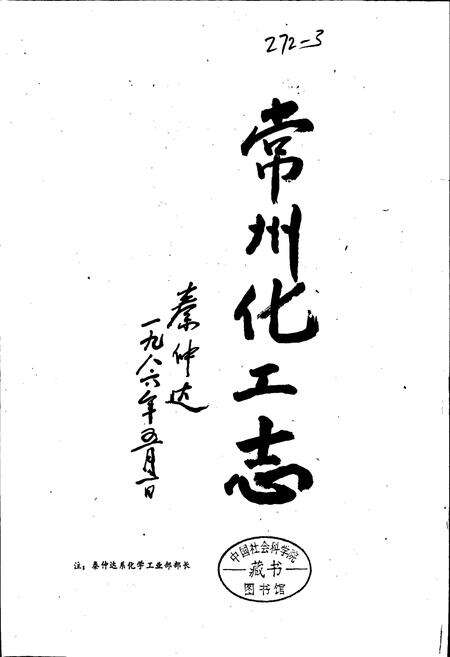 272=3
常州化工志
秦仲达
一九八六年五月一日
注：秦仲达系化学工业部部长
中国社会科学院
藏书
图书馆